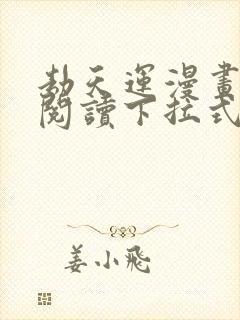 劫天運漫畫
閱讀下拉式
姜小飛